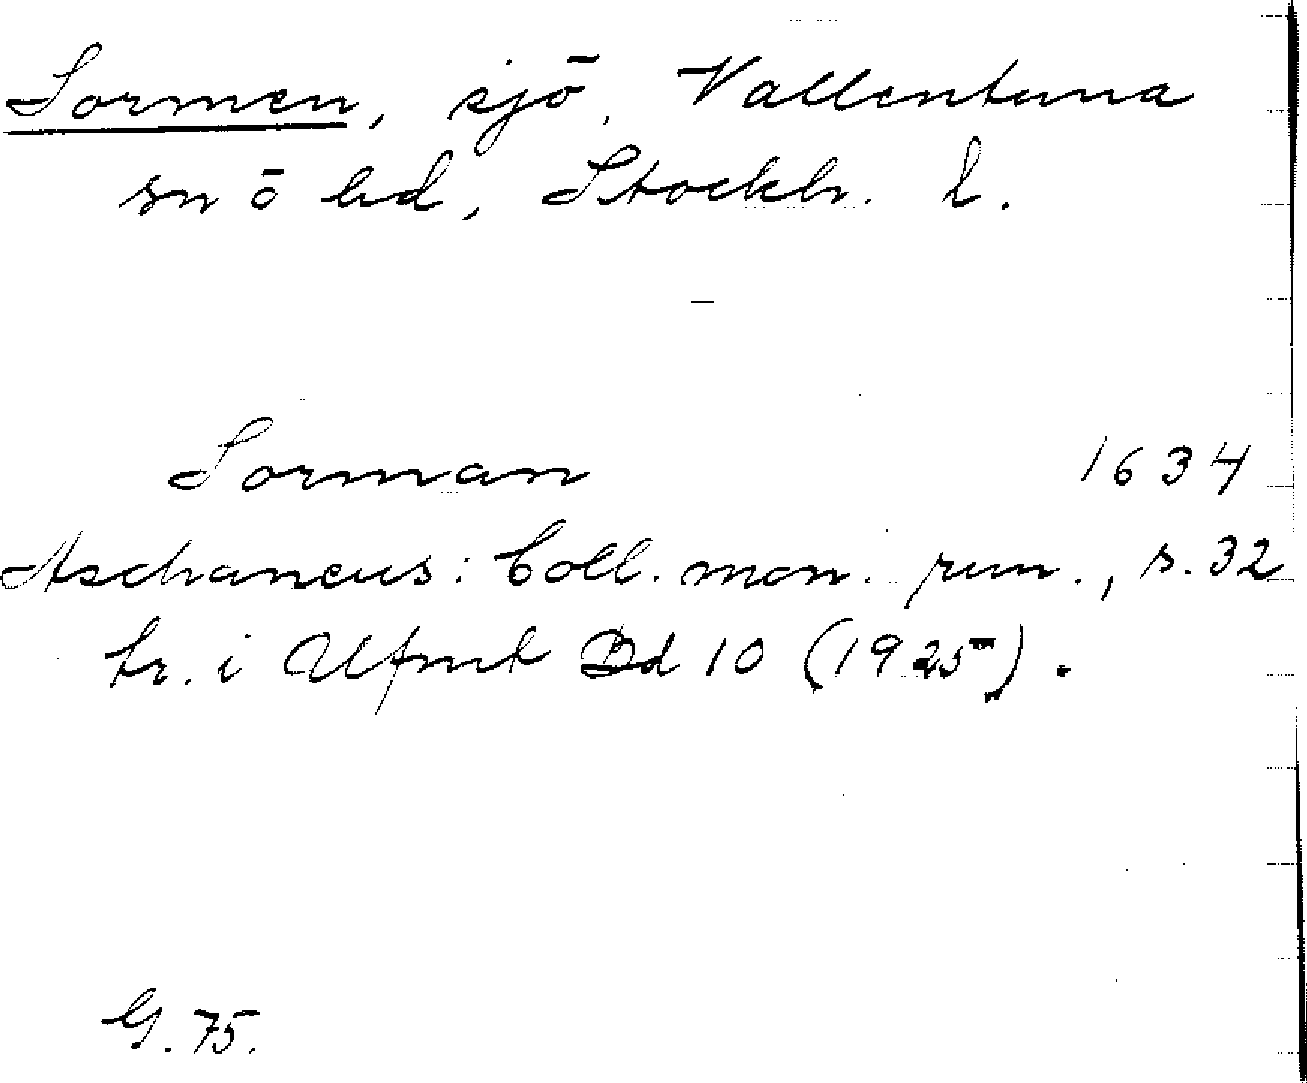 Sormen, sjö, Vallentuna
sn o hd, Stockh. l.
Sorman 1634
Aschaneus: Coll. mon. run., s. 32
tr. i Ufmt Bd 10 (1925).
G. 75.